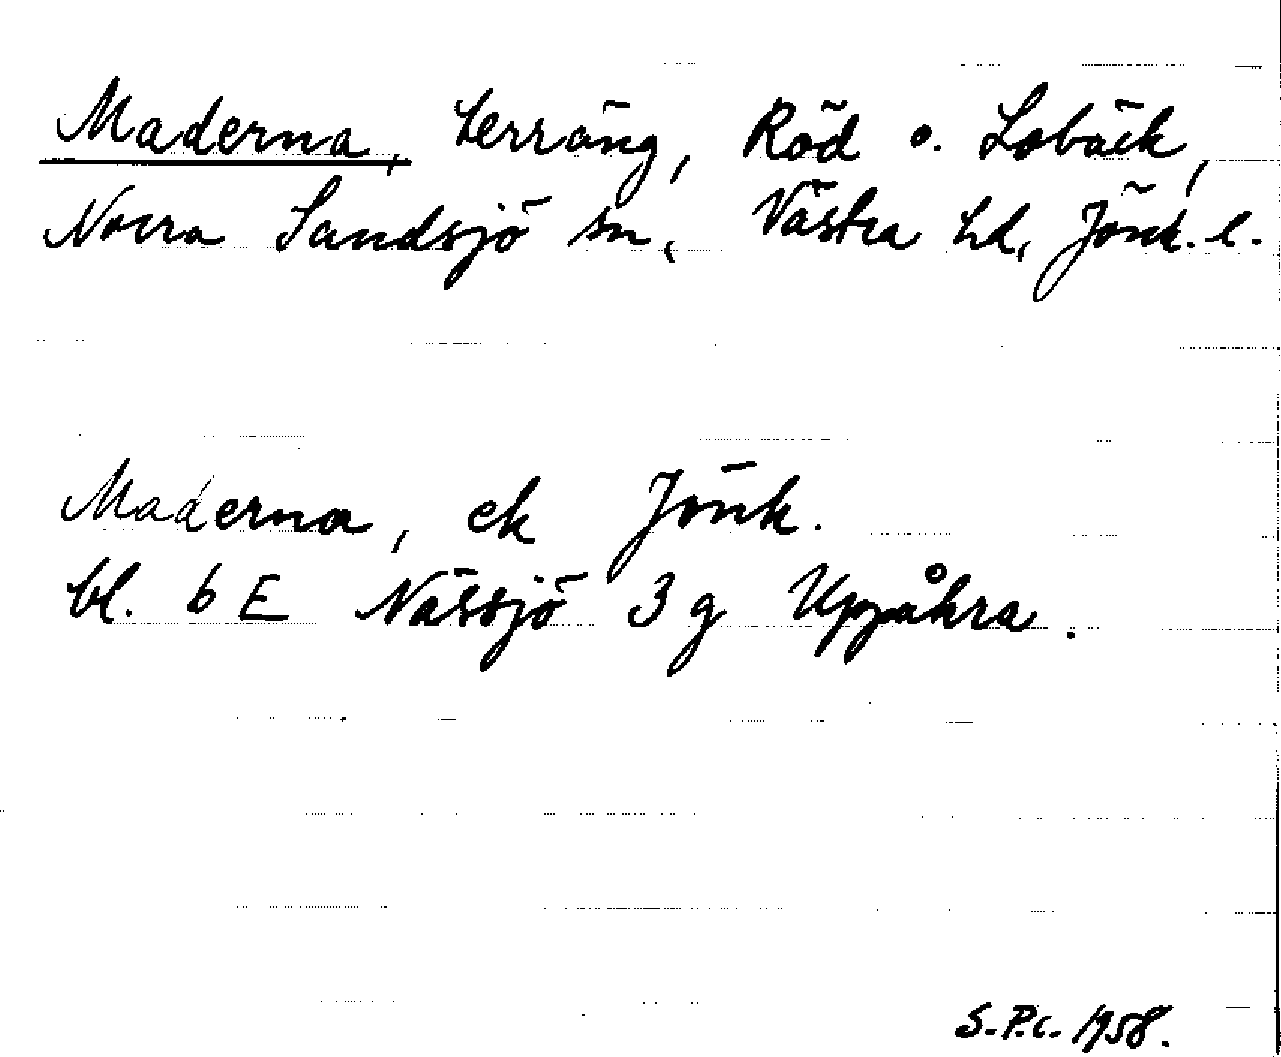 Maderna, terräng, Röd o. Lobäck,
Norra Sandsjö sn, Västra hd, Jönk. l.
Maderna, ek Jönk.
bl. 6 E Nässjö 3 g Uppåkra.
S.P.C. 1958.